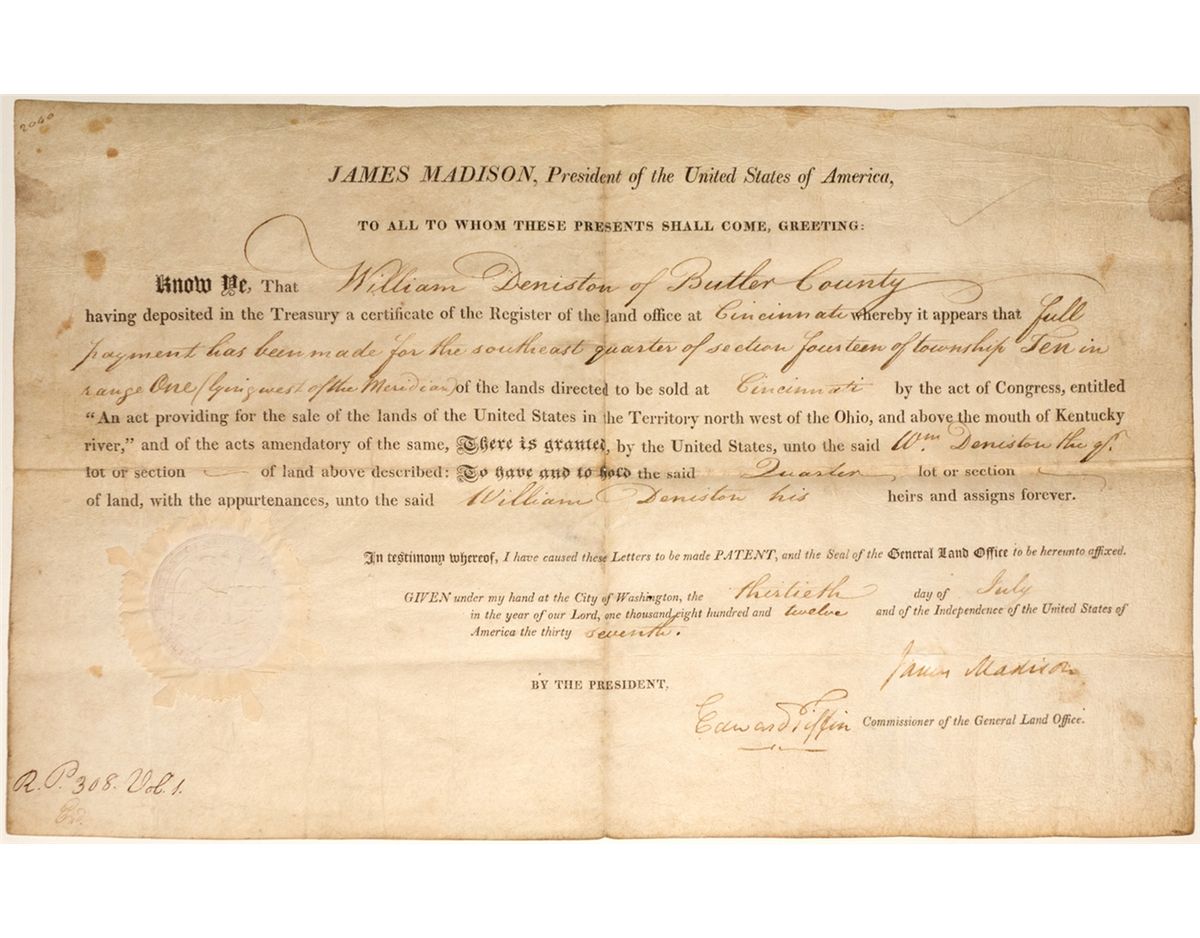 2040
JAMES MADISON, President of the United States of America,
TO ALL TO WHOM THESE PRESENTS SHALL COME, GREETING:
Know Ye, That William Deniston of Butler County
having deposited in the Treasury a certificate of the Register of the land office at Cincinnati whereby it appears that full
payment has been made for the southeast quarter of section fourteen of township Ten in
range One (lying west of the Meridian) of the lands directed to be sold at Cincinnati by the act of Congress, entitled
“An act providing for the sale of the lands of the United States in the Territory north west of the Ohio, and above the mouth of Kentucky
river,” and of the acts amendatory of the same, There is granted, by the United States, unto the said Wm. Deniston the qr.
lot or section of land above described: To have and to hold the said Quarter lot or section
of land, with the appurtenances, unto the said William Deniston his heirs and assigns forever.
In testimony whereof, I have caused these Letters to be made PATENT, and the Seal of the General Land Office to be hereunto affixed.
GIVEN under my hand at the City of Washington, the thirtieth day of July
in the year of our Lord, one thousand eight hundred and twelve and of the Independence of the United States of
America the thirty seventh.
James Madison
BY THE PRESIDENT,
Edward Tiffin Commissioner of the General Land Office.
R. P. 308. Vol. 1.